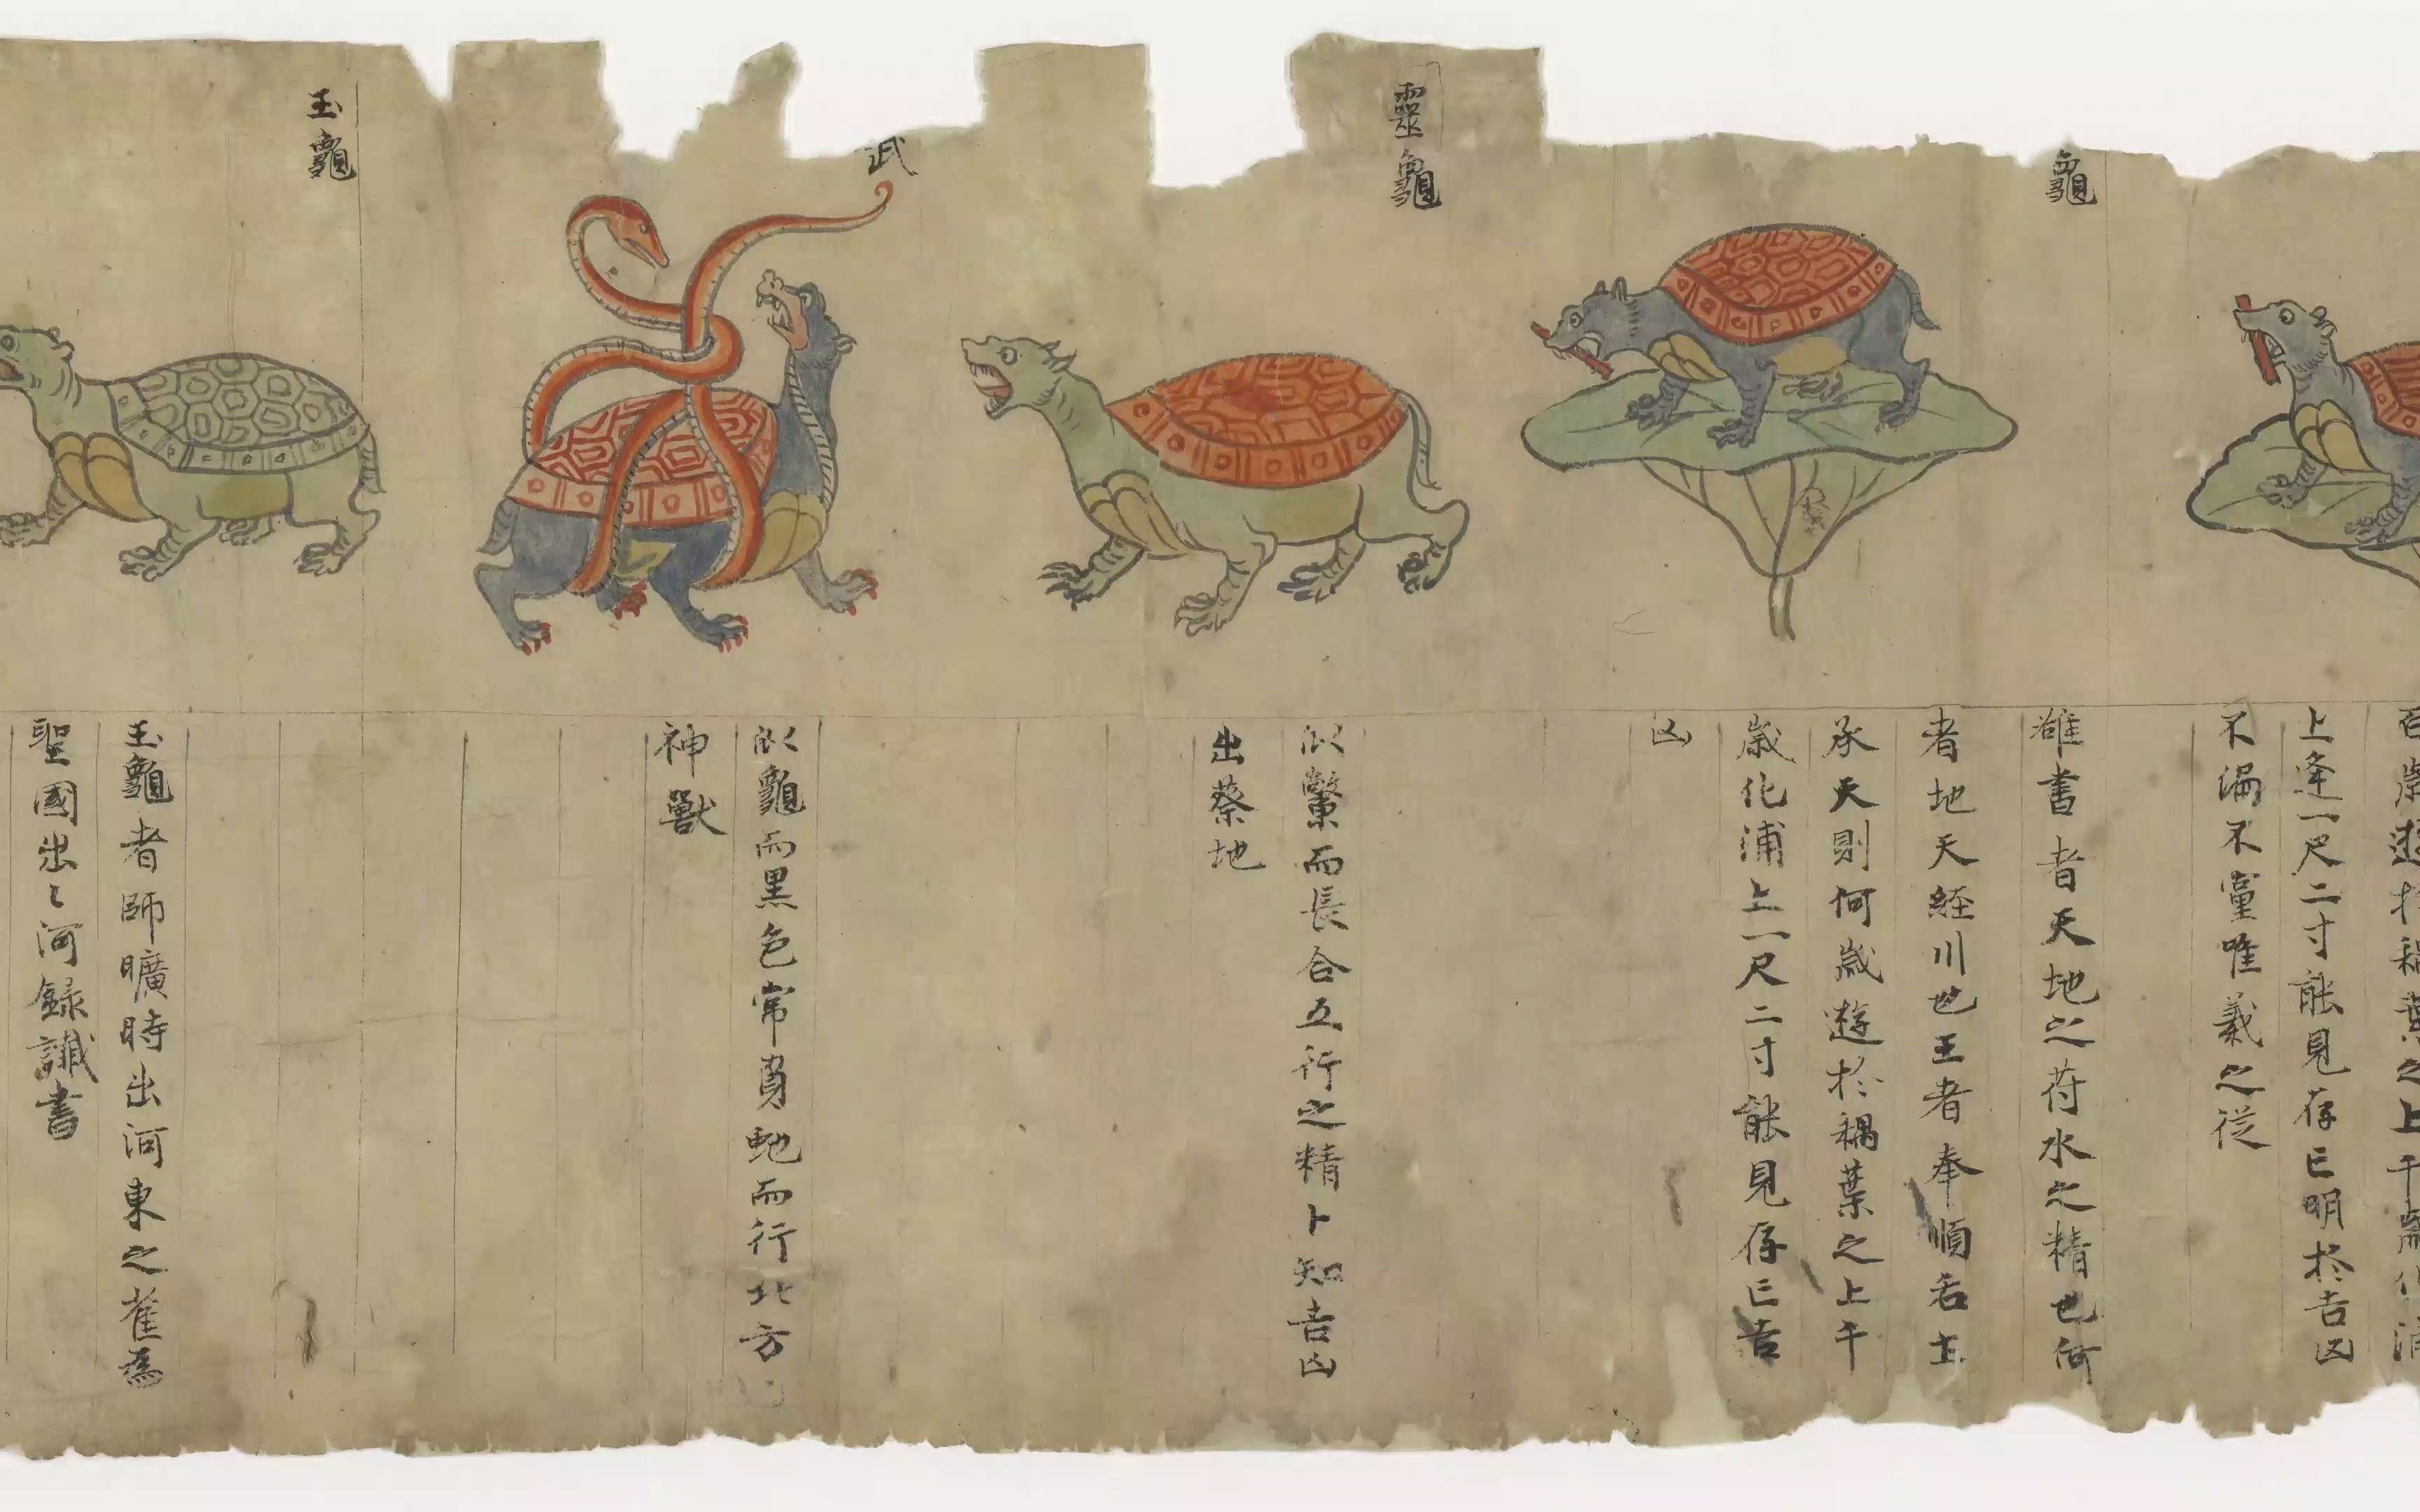 龜
靈龜
武
玉龜
百歲遊於耦葉之上千歲化浦
上逢一尺二寸能見存亡明於吉凶
不漏不黨唯義之從
雒書者天地之苻水之精也何
者地天經川也王者奉順名士
承天則何歲遊於耦葉之上千
歲化浦上一尺二寸能見存亡吉
凶
似鱉而長合五行之精卜知吉凶
出蔡地
似龜而黑色常負虵而行北方
神獸
玉龜者師曠時出河東之崔為
聖國出〻河錄讖書